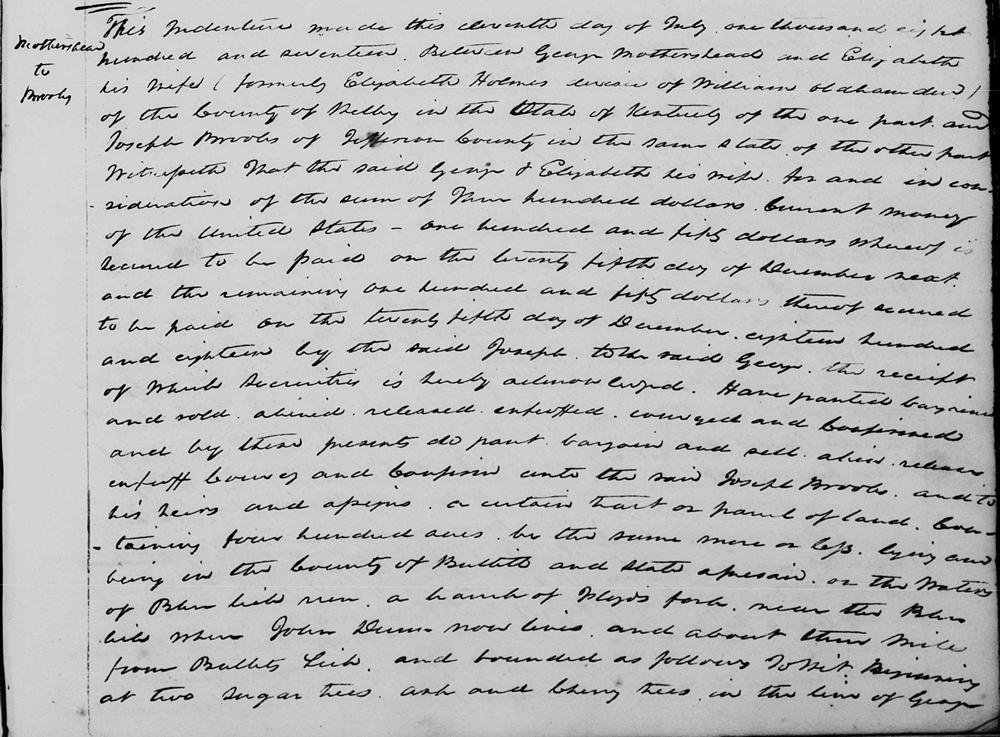 Mothershead
to
Brooks
This Indenture made this eleventh day of July one thousand eight
hundred and seventeen. Between George Mothershead and Elizabeth
his wife (formerly Elizabeth Holmes devisee of William Oldham decd)
of the County of Shelby in the State of Kentucky of the one part and
Joseph Brooks of Jefferson County in the same State of the other part
Witnesseth That the said George & Elizabeth his wife for and in con-
-sideration of the sum of Three hundred dollars Current money
of the United States - one hundred and fifty dollars whereof is
secured to be paid on the twenty fifth day of December next
and the remaining one hundred and fifty dollars thereof secured
to be paid on the twenty fifth day of December eighteen hundred
and eighteen by the said Joseph to the said George the receipt
of which securities is hereby acknowledged. Have granted bargained
and sold aliened released enfeoffed conveyed and Confirmed
and by these presents do grant bargain and sell alien release
enfeoff Convey and Confirm unto the said Joseph Brooks and to
his heirs and assigns a certain tract or parcel of land Con-
-taining four hundred acres be the same more or less lying and
being in the County of Bullitt and State aforesaid on the Waters
of Blue lick run a branch of Floyds fork near the Blue
lick where John Dunn now lives and about three mile
from Bullitts Lick and bounded as follows To Wit Beginning
at two sugar trees ash and Cherry trees in the line of George